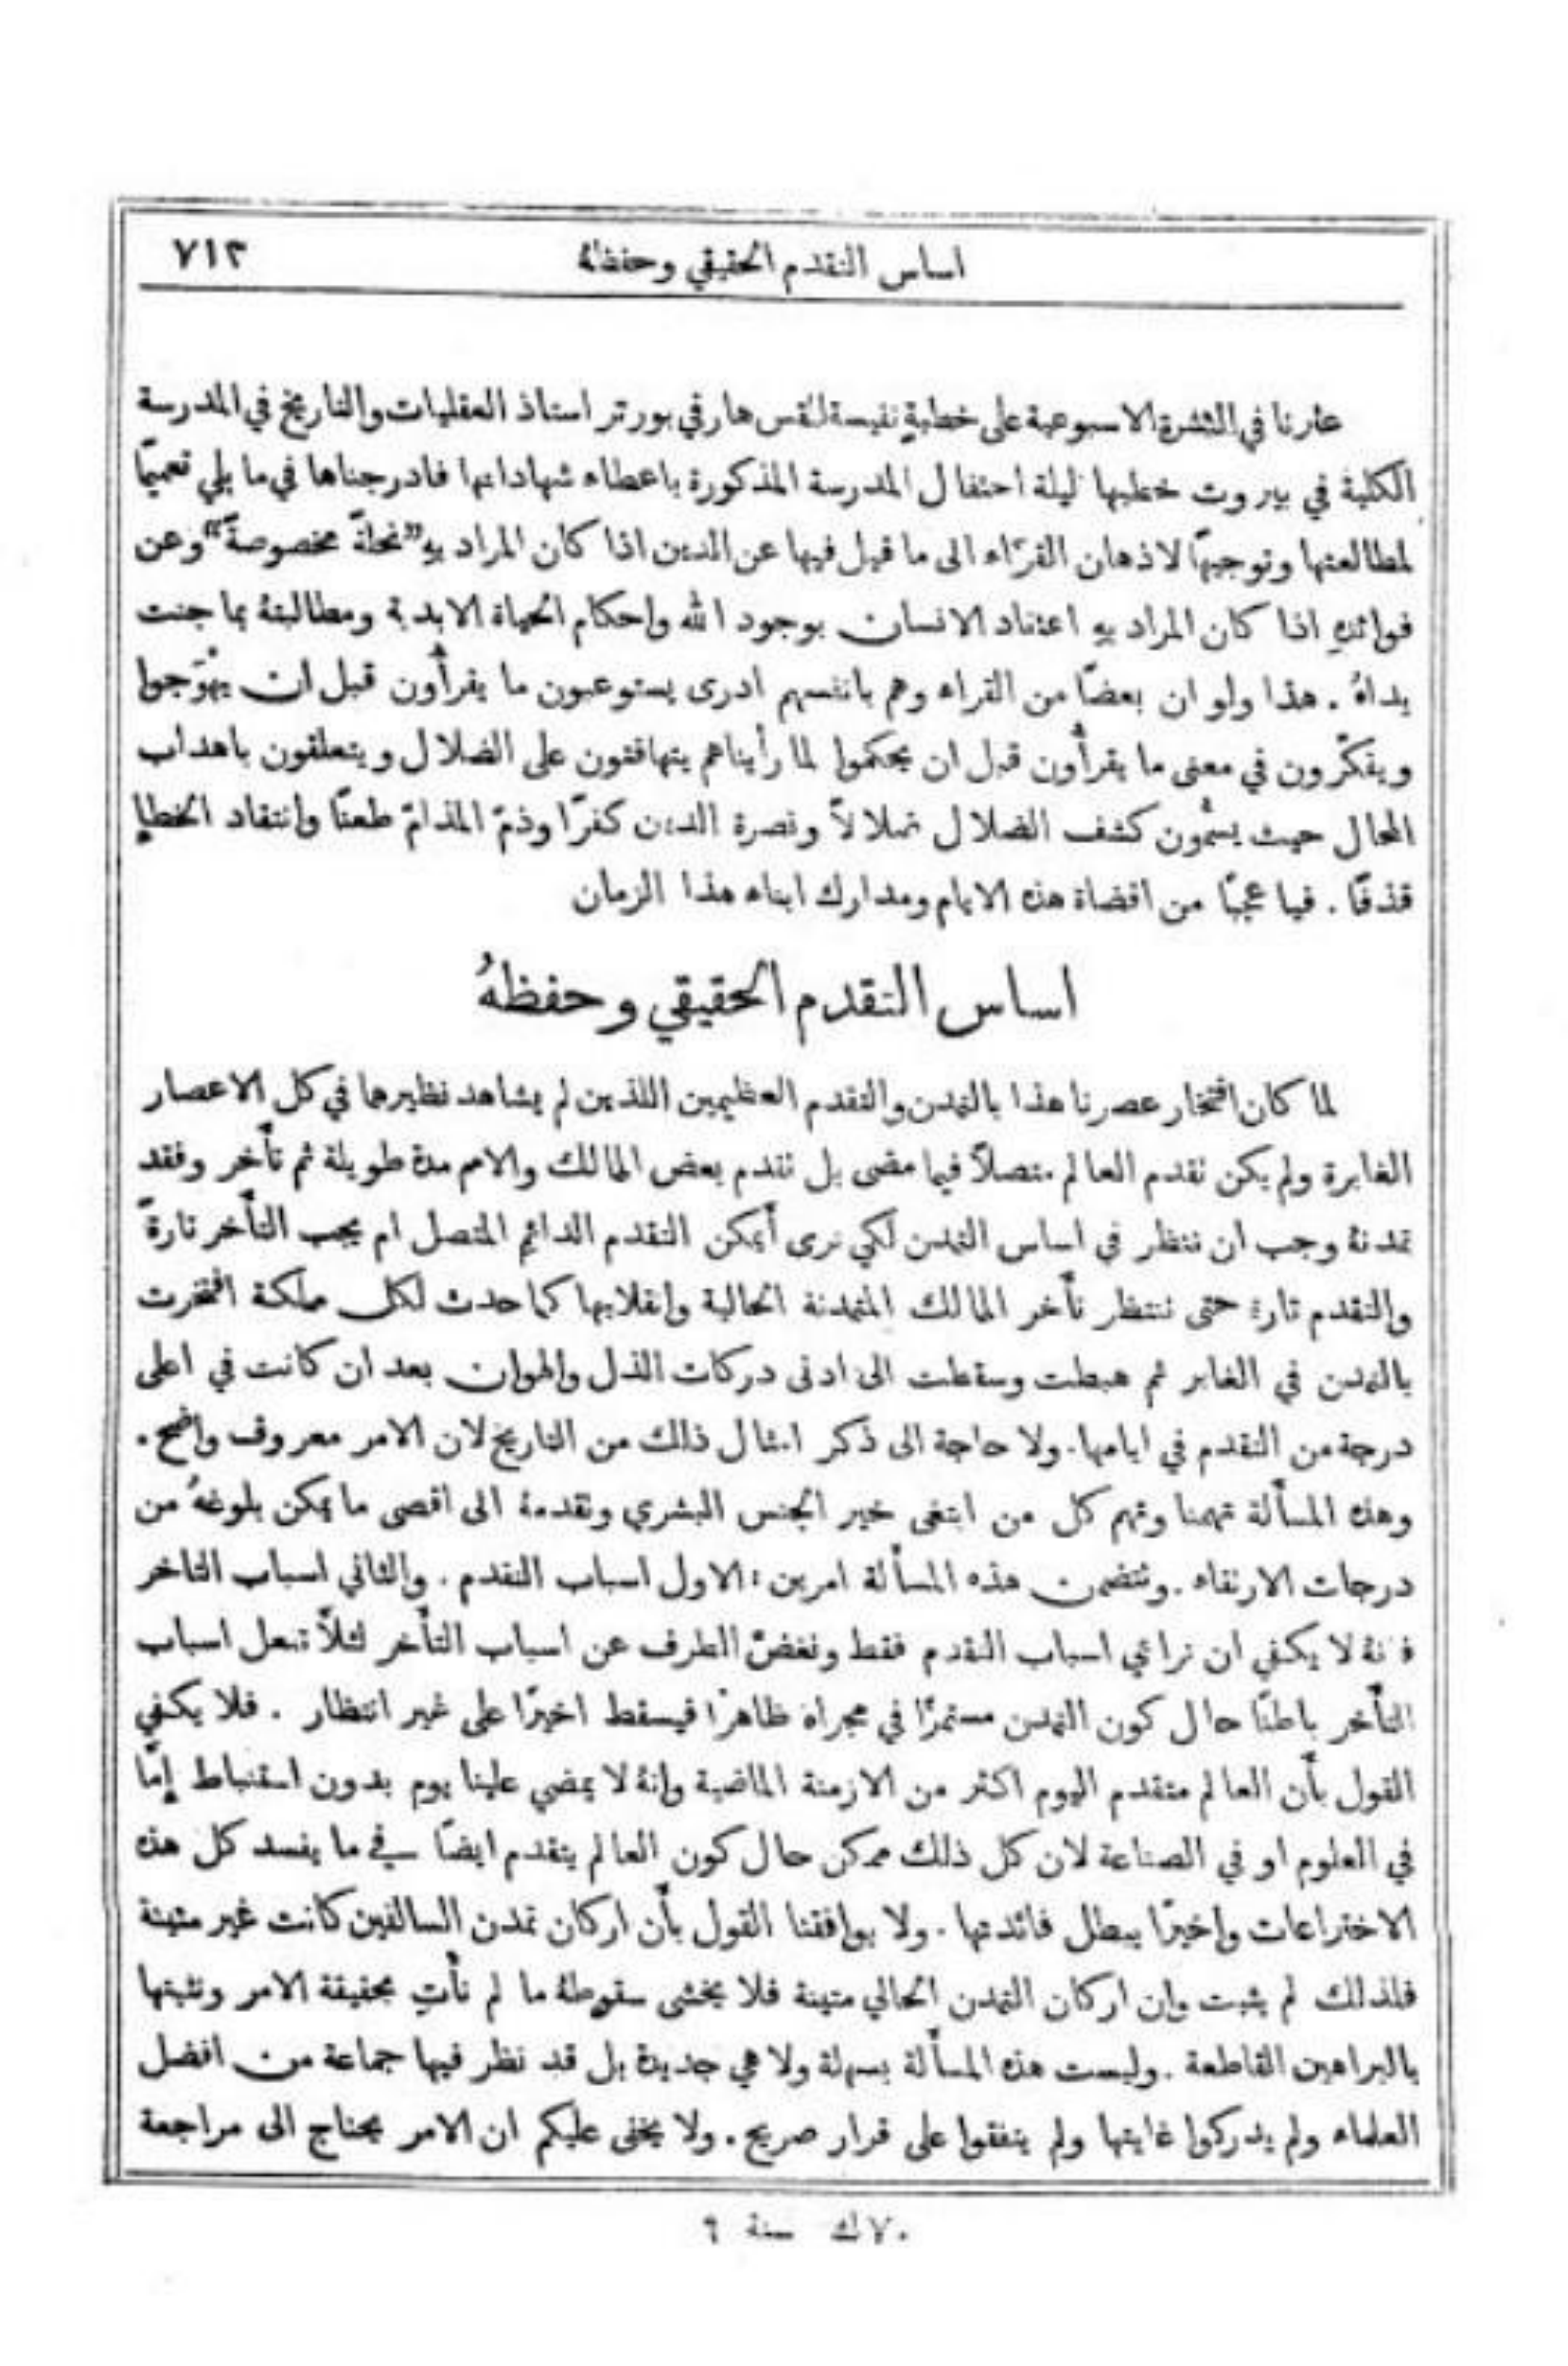 اساس التقدم الحقيقي وحفظهُ
٧١٣
عثرنا في النشرة الاسبوعية على خطبةٍ نفيسة للقس هارفي بورتر استاذ العقليات والتاريخ في المدرسة
الكلية في بيروت خطبها ليلة احتفال المدرسة المذكورة باعطاء شهاداتها فادرجناها في ما يلي تعميمًا
لمطالعتها وتوجيهًا لاذهان القرّاء الى ما قيل فيها عن الدين اذا كان المراد بهِ ”نحلةً مخصوصةً“ وعن
فوائدهِ اذا كان المراد بهِ اعتقاد الانسان بوجود الله واحكام الحياة الابدية ومطالبتهُ بما جنت
يداهُ . هذا ولو ان بعضًا من القراء وهم بانفسهم ادرى يستوعبون ما يقرأُون قبل ان يهوَّجوا
ويفكّرون في معنى ما يقرأُون قبل ان يحكموا لما رأيناهم يتهافتون على الضلال ويتعلقون باهداب
المحال حيث يسمُّون كشف الضلال ضلالاً ونصرة الدين كفرًا وذمّ المذامّ طعنًا وانتقاد الخطإِ
قذفًا . فيا عجبًا من اقضاة هذه الايام ومدارك ابناء هذا الزمان
اساس التقدم الحقيقي وحفظهُ
لما كان افتخار عصرنا هذا بالتمدن والتقدم العظيمين اللذين لم يشاهد نظيرهما في كل الاعصار
الغابرة ولم يكن تقدم العالم متصلاً فيما مضى بل تقدم بعض الممالك والامم مدة طويلة ثم تأَخر وفقد
تمدنهُ وجب ان ننظر في اساس التمدن لكي نرى أَيمكن التقدم الدائم المتصل ام يجب التأَخر تارةً
والتقدم تارة حتى ننتظر تأَخر الممالك المتمدنة الحالية وانقلابها كما حدث لكل مملكة افتخرت
بالتمدن في الغابر ثم هبطت وسقطت الى ادنى دركات الذل والهوان بعد ان كانت في اعلى
درجة من التقدم في ايامها . ولا حاجة الى ذكر امثال ذلك من التاريخ لان الامر معروف واضح .
وهذه المسأَلة تهمنا وتهم كل من ابتغى خير الجنس البشري وتقدمهُ الى اقصى ما يمكن بلوغهُ من
درجات الارتقاء . وتتضمن هذه المسأَلة امرين : الاول اسباب التقدم . والثاني اسباب التاخر
فانهُ لا يكفي ان نراعي اسباب التقدم فقط ونغضّ الطرف عن اسباب التأَخر لئلاَّ تفعل اسباب
التأَخر باطنًا حال كون التمدن مستمرًّا في مجراه ظاهرًا فيسقط اخيرًا على غير انتظار . فلا يكفي
القول بأَن العالم متقدم اليوم اكثر من الازمنة الماضية وانهُ لا يمضي علينا يوم بدون استنباط إِمَّا
في العلوم او في الصناعة لان كل ذلك ممكن حال كون العالم يتقدم ايضًا في ما يفسد كل هذه
الاختراعات واخيرًا يبطل فائدتها . ولا يوافقنا القول بأَن اركان تمدن السالفين كانت غير متينة
فلذلك لم يثبت وان اركان التمدن الحالي متينة فلا يخشى سقوطهُ ما لم نأتِ بحقيقة الامر ونثبتها
بالبراهين القاطعة . وليست هذه المسأَلة بسهلة ولا هي جديدة بل قد نظر فيها جماعة من افضل
العلماء ولم يدركوا غايتها ولم يتفقوا على قرار صريح . ولا يخفى عليكم ان الامر يحتاج الى مراجعة
سنة ٦